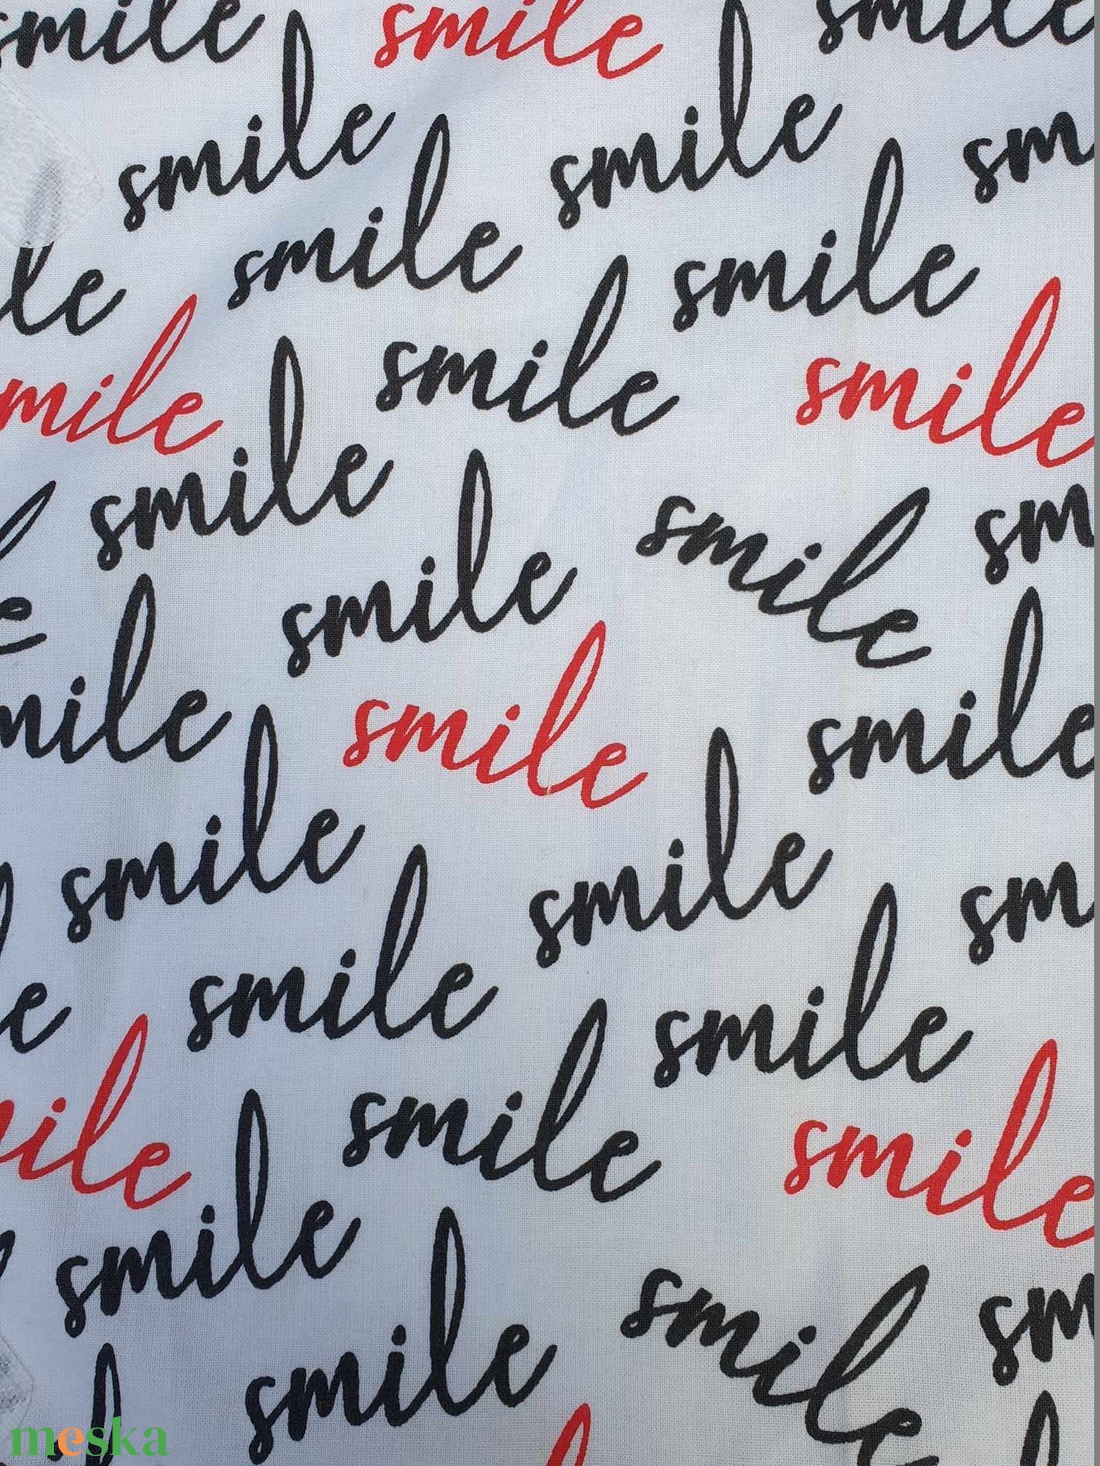 smile smile smile
smile smile sm
smile smile
le
smile smile
mile
smile
smile sm
smile
e
smile
mile smile
smile
smile sm
smile
e smile
ile
smile
smile
smile
smile
smile sm
smile
meska